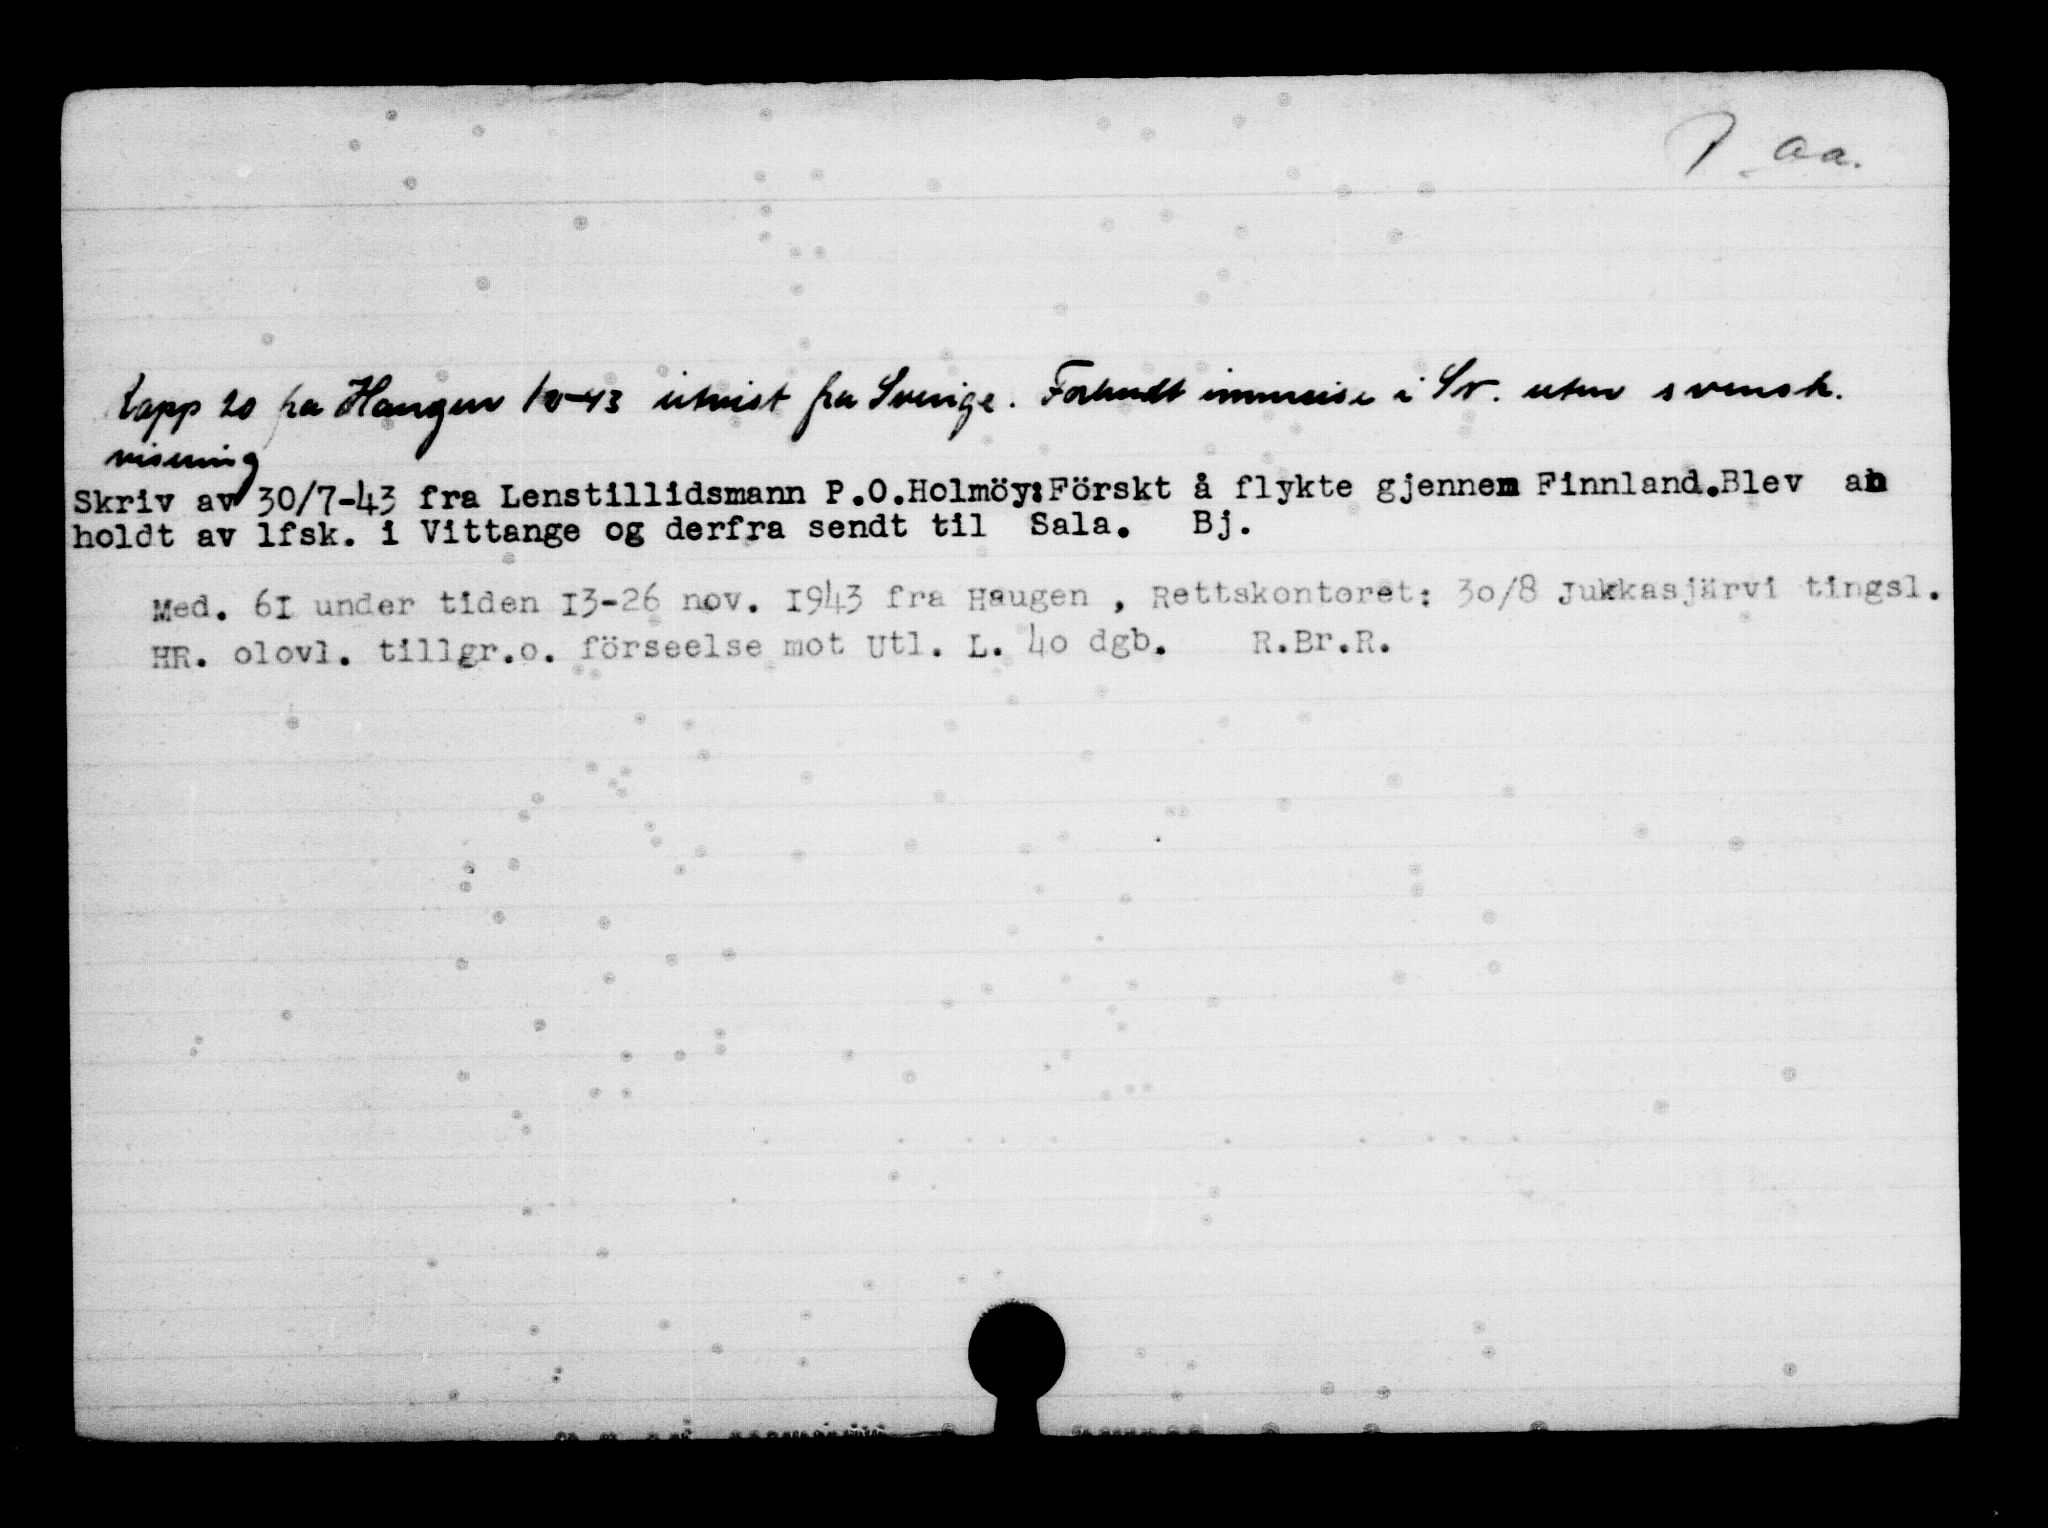 aa.
Rapp 20 fra Haugen 10-43 utvist fra Sverige. Forbudt innreise i Sv. uten svensk.
visering
Skriv av 30/7-43 fra Lenstillidsmann P.O.Holmöy:Förskt å flykte gjennem Finnland.Blev an
holdt av lfsk. i Vittange og derfra sendt til Sala. Bj.
Med. 61 under tiden 13-26 nov. 1943 fra Haugen , Rettskontoret: 30/8 Jukkasjärvi tingsl.
HR. olovl. tillgr.o. förseelse mot Utl. L. 40 dgb. R.Br.R.